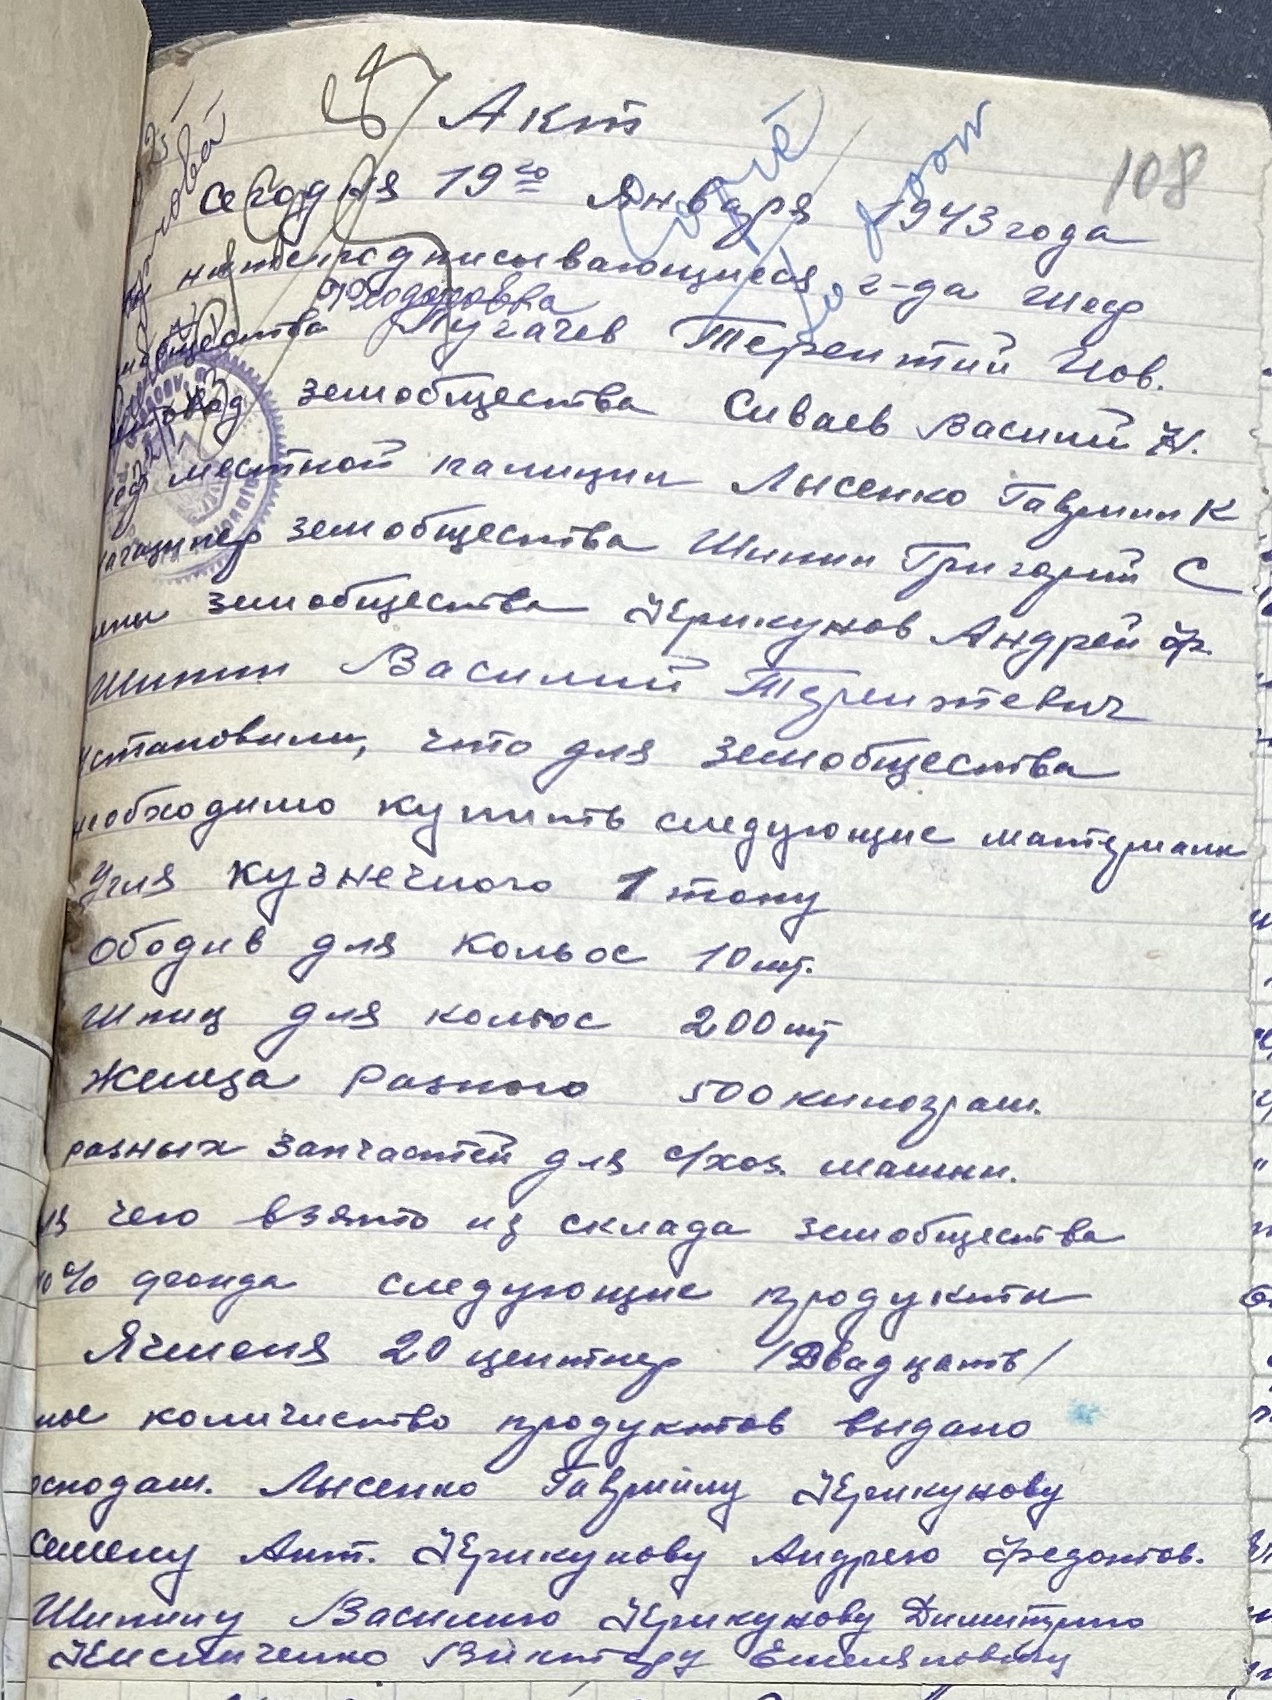 108
Акт
Сегодня 19го Января 1943 года
нижеподписывающиеся г-да Шеф
общества Пугачев Терентий Иов.
Федоровна
земобщества Сиваев Василий Н.
шеф местной палиции Лысенко Гаврил К
магазинер земобщества Шипин Григорий С
члены земобщества Крикунов Андрей Ф.
Шипин Василий Терентевич
установили, что для земобщества
необходимо купить следующие материали
Угля кузнечного 1 тону
ободив для кольос 10 шт.
Шпиц для кольос 200 шт
Железа разного 500 килограм.
разных запчастей для с/хоз. машин.
для чего взято из склада земобщества
10% фонда следующие продукты
Ячменя 20 центнер /Двадцать/
ное количество продуктов выдано
господам. Лысенко Гаврилу Крикунову
Семену Ант. Крикунову Андрею Федотов.
Шипину Василию Крикунову Димитрию
Кисличенко Виктору Емеляновичу